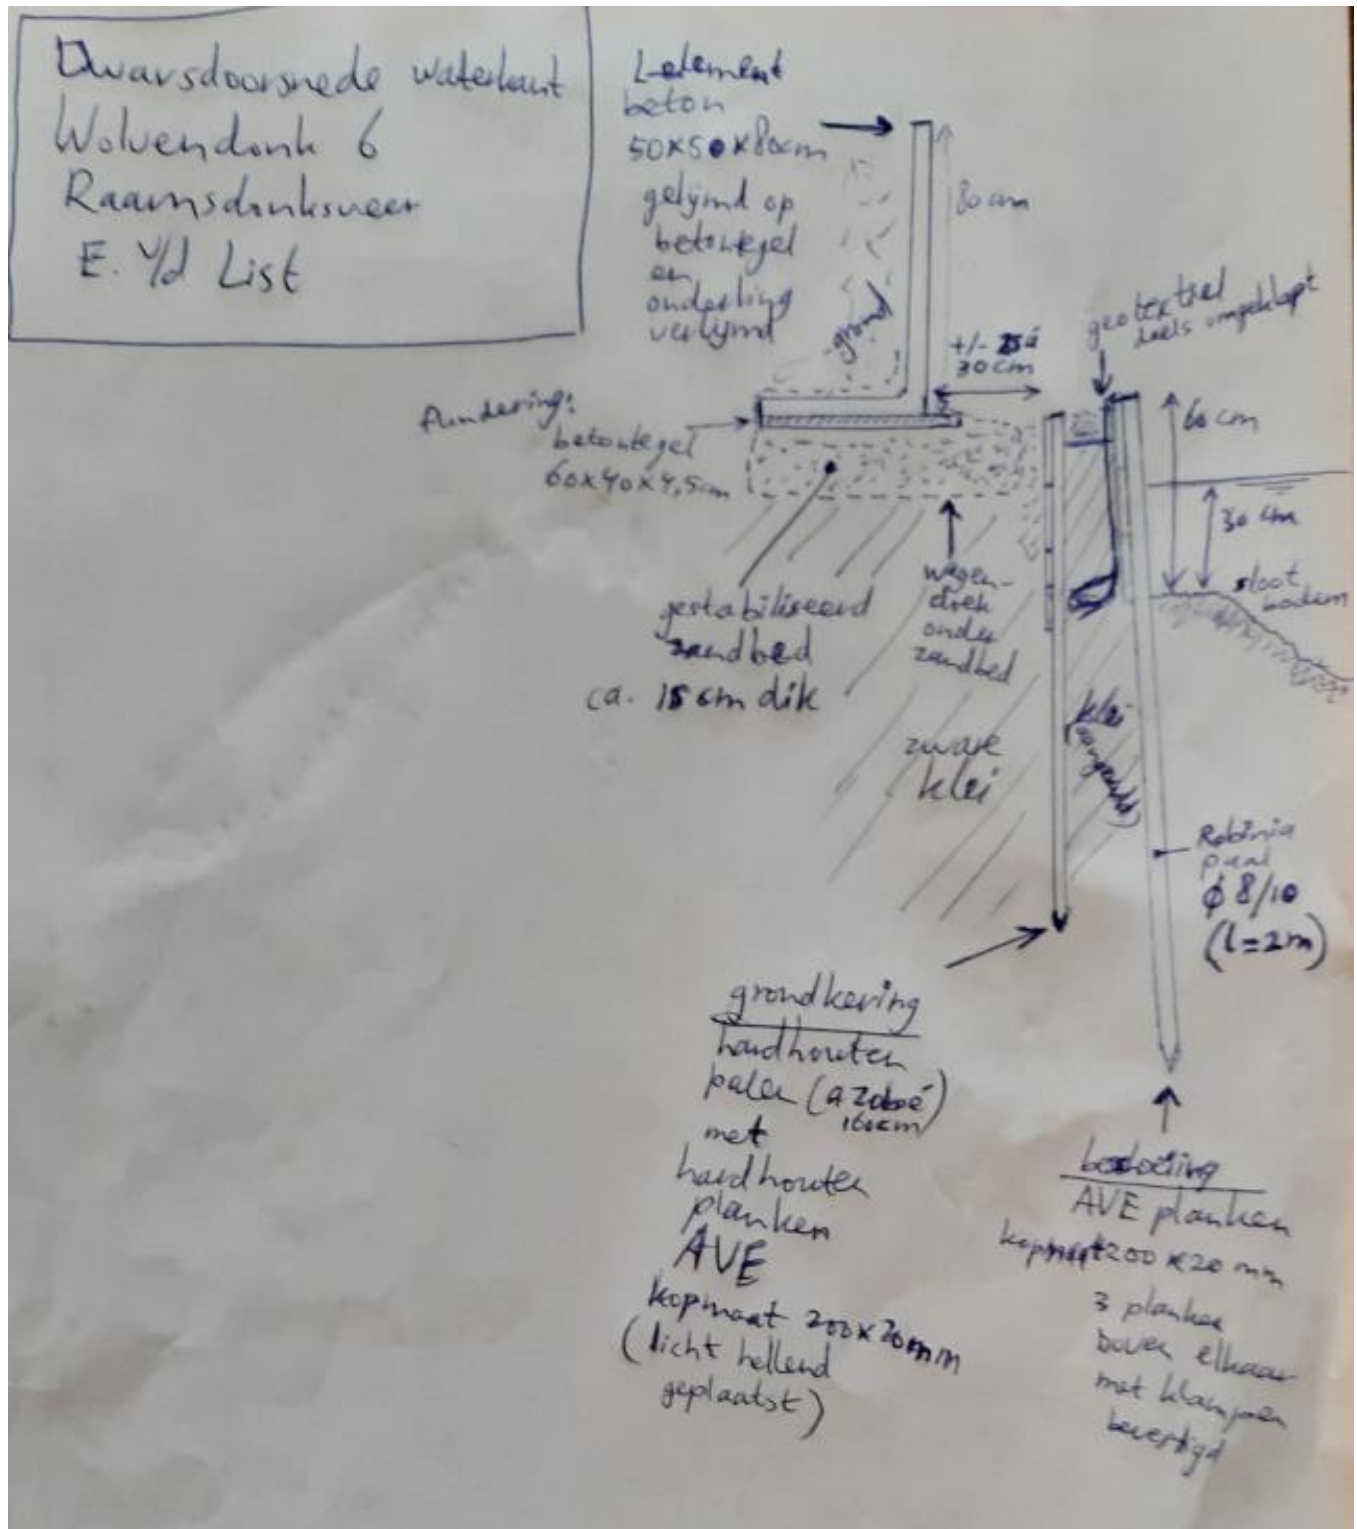 Dwarsdoorsnede waterkant
Wolvendonk 6
Raamsdonksveer
E. v/d List
L-element
beton
50x50x80cm
gelijmd op
betontegel
en
onderling
verlijmd
grond
80 cm
+/- 25 á
30 cm
geotextiel
deels omgeklapt
60 cm
30 cm
sloot
bodem
fundering:
betontegel
60x40x4,5cm
gestabiliseerd
zandbed
ca. 15 cm dik
wagen-
doek
onder
zandbed
zware
klei
klei
(aangevuld)
Robinia
paal
ϕ 8/10
(l=2m)
grondkering
hardhouten
palen (azobé)
160cm
met
hardhouten
planken
AVE
kopmaat 200x20mm
(licht hellend
geplaatst)
beschoeiing
AVE planken
kopmaat 200x20 mm
3 planken
boven elkaar
met klampen
bevestigd